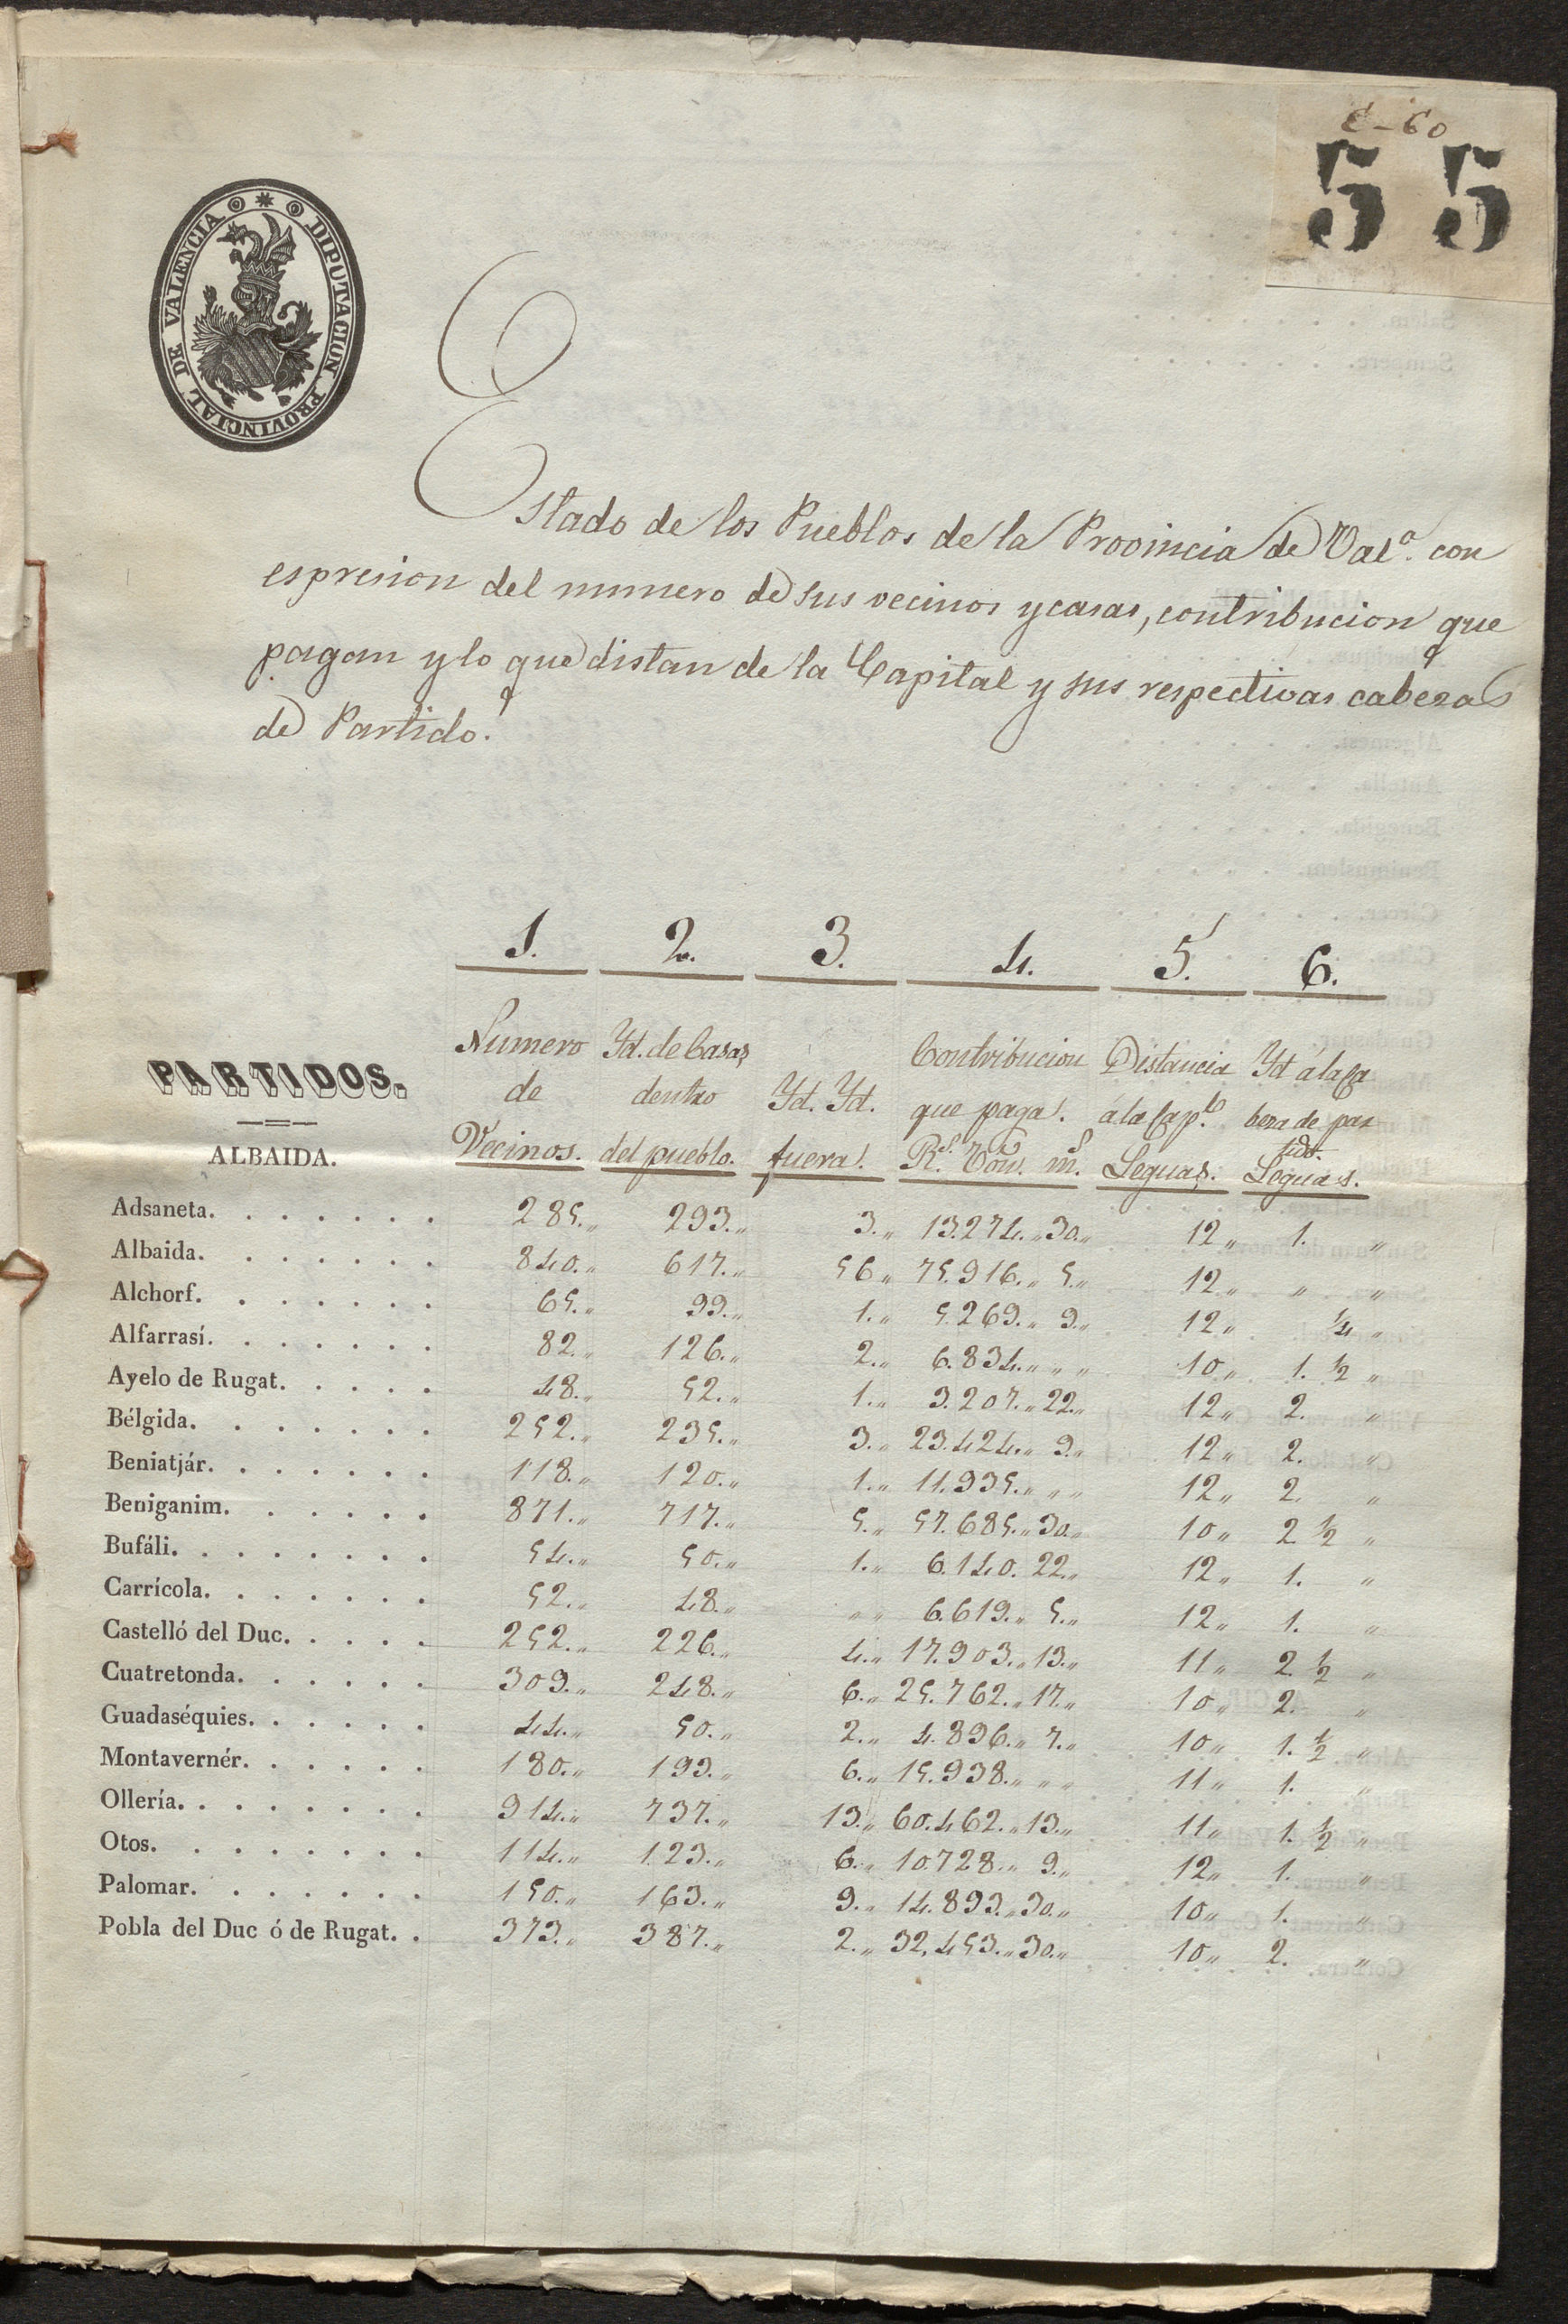 E-60
55
DIPUTACION PROVINCIAL DE VALENCIA
Estado de los Pueblos de la Provincia de Val.ª con
espresion del numero de sus vecinos y casas, contribucion que
pagan y lo que distan de la Capital y sus respectivas cabezas
de Partido.
1. 2. 3. 4. 5. 6.
PARTIDOS.
ALBAIDA.
Numero de Vecinos.
Yd. de Casas dentro del pueblo.
Yd. Yd. fuera.
Contribucion que paga. R.s Von. m.s
Distancia á la Cap.l Leguas.
Yd á la Ca beza de par tido. Leguas.
Adsaneta. . . . . . . 285.,, 293.,, 3.,, 13.274.,, 30.,, 12,, 1. ,,
Albaida. . . . . . . 840.,, 617.,, 56,, 75.916.,, 5.,, 12,, ,, ,,
Alchorf. . . . . . . 65.,, 99.,, 1.,, 5.269.,, 9.,, 12,, 1/4 ,,
Alfarrasí. . . . . . . 82.,, 126.,, 2.,, 6.834.,, ,, ,, 10,, 1. 1/2 ,,
Ayelo de Rugat. . . . . 48.,, 52.,, 1.,, 3.207.,, 22.,, 12,, 2. ,,
Bélgida. . . . . . . 252.,, 235.,, 3.,, 23.424.,, 9.,, 12,, 2. ,,
Beniatjár. . . . . . . 118.,, 120.,, 1.,, 11.935.,, ,, ,, 12,, 2. ,,
Beniganim. . . . . . 871.,, 717.,, 5.,, 57.685.,, 30.,, 10,, 2 1/2 ,,
Bufáli. . . . . . . . 54.,, 50.,, 1.,, 6.140. 22.,, 12,, 1. ,,
Carrícola. . . . . . . 52.,, 48.,, ,, ,, 6.619.,, 5.,, 12,, 1. ,,
Castelló del Duc. . . . . 252.,, 226.,, 4.,, 17.903.,, 13.,, 11,, 2. 1/2 ,,
Cuatretonda. . . . . . 309.,, 248.,, 6.,, 25.762.,, 17.,, 10,, 2. ,,
Guadaséquies. . . . . . 44.,, 50.,, 2.,, 4.896.,, 7.,, 10,, 1. 1/2 ,,
Montavernér. . . . . . 180.,, 193.,, 6.,, 15.938.,, ,, ,, 11,, 1. ,,
Ollería. . . . . . . . 914.,, 737.,, 13.,, 60.462.,, 13.,, 11,, 1. 1/2 ,,
Otos. . . . . . . . 114.,, 123.,, 6.,, 10.728.,, 9.,, 12,, 1. ,,
Palomar. . . . . . . 150.,, 163.,, 9.,, 14.893.,, 30.,, 10,, 1. ,,
Pobla del Duc ó de Rugat. . 373.,, 387.,, 2.,, 32,453.,, 30.,, 10,, 2. ,,